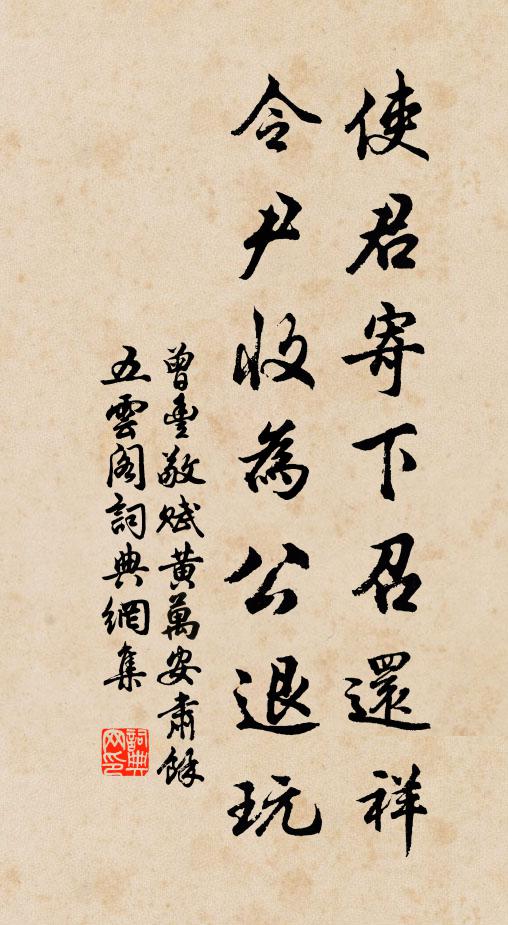 使君寄下召還祥
令尹收為公退玩
曾豊敬賦黃萬安肅餘
五雲閣詞典網集
詞典网印